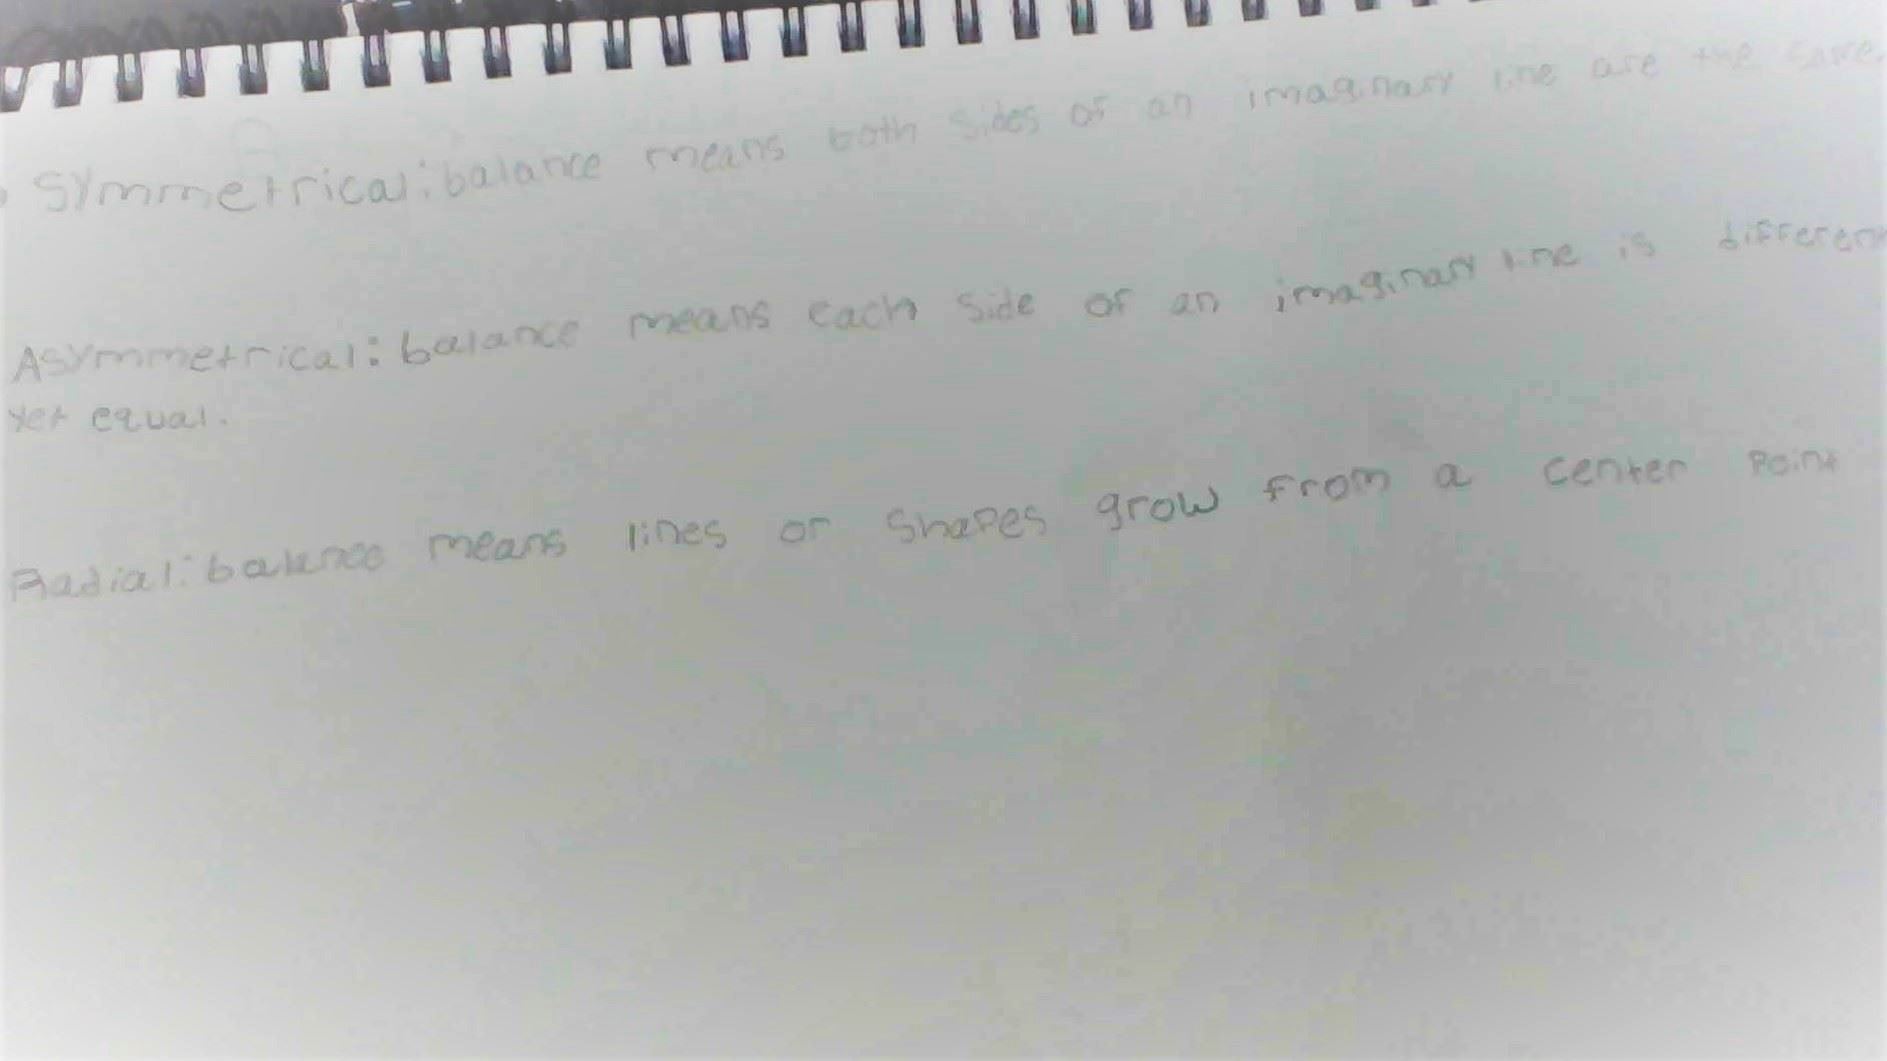 Symmetrical: balance means both sides of an imaginary line are the same.
Asymmetrical: balance means each side of an imaginary line is different
yet equal.
Radial: balance means lines or shapes grow from a center point